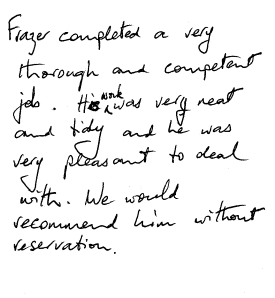 Frazer completed a very
thorough and competent
job. His work was very neat
and tidy and he was
very pleasant to deal
with. We would
recommend him without
reservation.